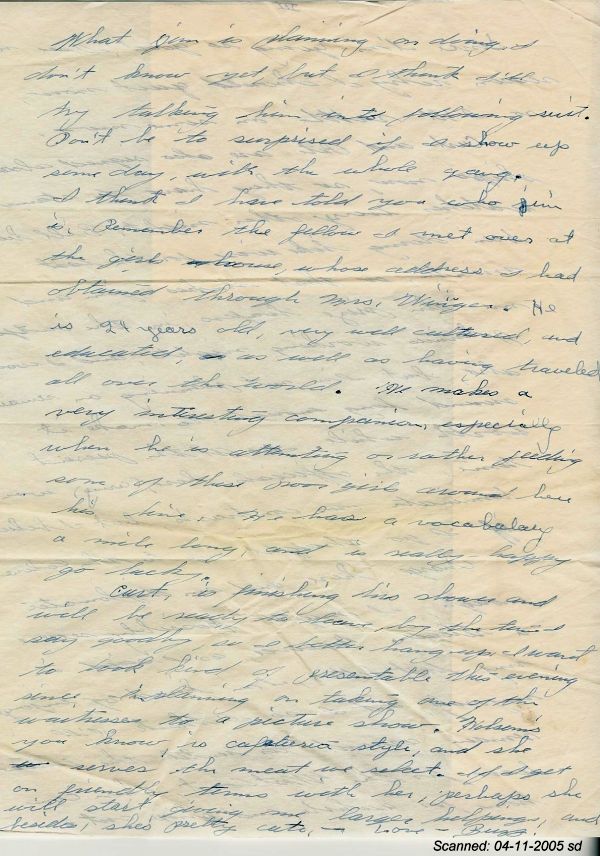 What Jim is planning on doing, I
don't know yet, but I think I'll
try talking him into following suit.
Don't be to surprised if I show up
some day, with the whole gang.
I think I have told you who Jim
is. Remember the fellow I met over at
the girls house, whose address I had
obtained through Mrs. Winger. He
is 24 years old, very well cultured, and
educated, as well as having traveled
all over the world. He makes a
very interesting companion, especially
when he is attempting or rather feeding
some of these poor girls around here
his line. He has a vocabulary
a mile long, and is really happy
go lucky.
Curt, is finishing his shower and
will be ready to leave by the time I
say goodby, so I better hang up. I want
to look kind of presentable this evening
since I'm planning on taking one of the
waitresses to a picture show. Wilson's
you know, is cafeteria style, and she
serves the meat we select. If I get
on friendly terms with her, perhaps she
will start giving me larger helpings, and
besides, she's pretty cute, - Love -
Scanned: 04-11-2005 sd